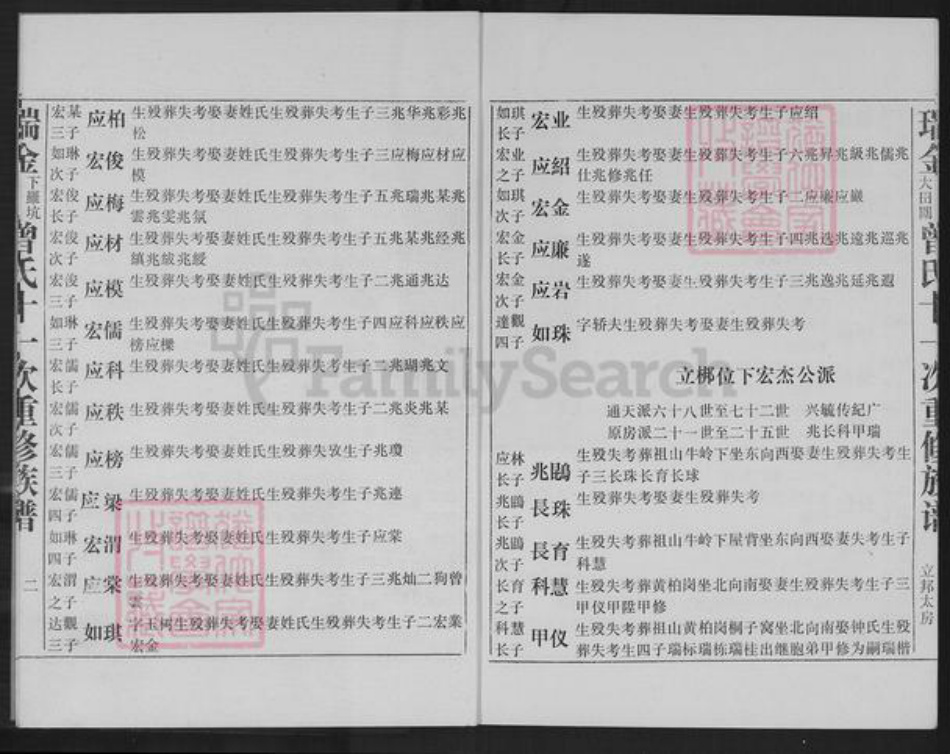 瑞金下罹坑曾氏十一次重修族譜
二
宏某三子 应柏 生殁葬失考娶妻姓氏生殁葬失考生子三兆华兆彩兆
松
如琳次子 宏俊 生殁葬失考娶妻姓氏生殁葬失考生子三应梅应材应
模
宏俊长子 应梅 生殁葬失考娶妻姓氏生殁葬失考生子五兆瑞兆某兆
雲兆雯兆氛
宏俊次子 应材 生殁葬失考娶妻姓氏生殁葬失考生子五兆某兆经兆
縝兆紱兆綬
宏浚三子 应模 生殁葬失考娶妻姓氏生殁葬失考生子二兆通兆达
如琳三子 宏儒 生殁葬失考娶妻姓氏生殁葬失考生子四应科应秩应
榜应樑
宏儒长子 应科 生殁葬失考娶妻姓氏生殁葬失考生子二兆瑚兆文
宏儒次子 应秩 生殁葬失考娶妻姓氏生殁葬失考生子二兆炎兆某
宏儒三子 应榜 生殁葬失考娶妻姓氏生殁葬失攷生子兆瓊
宏儒四子 应梁 生殁葬失考娶妻姓氏生殁葬失考生子兆連
如琳四子 宏渭 生殁葬失考娶妻姓氏生殁葬失考生子应棠
宏渭之子 应棠 生殁葬失考娶妻姓氏生殁葬失考生子三兆灿二狗曾
雲
达觀三子 如琪 字玉树生殁葬失考娶妻姓氏生殁葬失考生子二宏業
宏金
瑞金大田曾氏十一次重修族谱
立邦太房
如琪长子 宏业 生殁葬失考娶妻生殁葬失考生子应绍
宏业之子 应紹 生殁葬失考娶妻生殁葬失考生子六兆昇兆級兆儒兆
仕兆修兆任
如琪次子 宏金 生殁葬失考娶妻生殁葬失考生子二应廉应巖
宏金长子 应廉 生殁葬失考娶妻生殁葬失考生子四兆选兆遠兆巡兆
遂
宏金次子 应岩 生殁葬失考娶妻生殁葬失考生子三兆逸兆延兆遐
達觀四子 如珠 字轿夫生殁葬失考娶妻生殁葬失考
立梆位下宏杰公派
通天派六十八世至七十二世 兴毓传紀广
原房派二十一世至二十五世 兆长科甲瑞
应林长子 兆鷗 生殁失考葬祖山牛岭下坐东向西娶妻生殁葬失考生
子三长珠长育长球
兆鷗长子 長珠 生殁葬失考娶妻生殁葬失考
兆鷗次子 長育 生殁失考葬祖山牛岭下屋背坐东向西娶妻失考生子
科慧
长育之子 科慧 生殁失考葬黄柏岗坐北向南娶妻生殁葬失考生子三
甲仪甲陞甲修
科慧长子 甲仪 生殁失考葬祖山黄柏岗桐子窝坐北向南娶钟氏生殁
葬失考生四子瑞标瑞栋瑞桂出继胞弟甲修为嗣瑞楷
FamilySearch